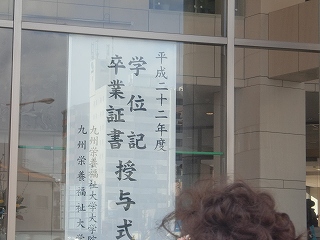 平成二十二年度
学位記
卒業証書
授与式
九州栄養福祉大学大学院
九州栄養福祉大学